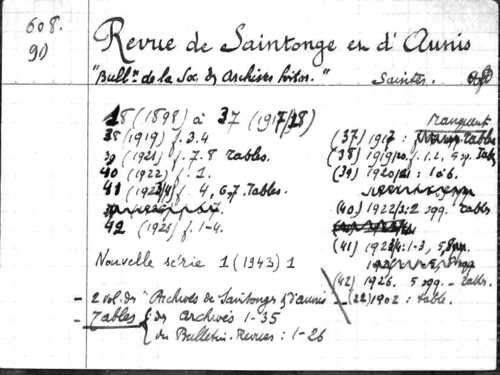 608.
91)
Revue de Saintonge et d'Aunis
"Bull.n de la Soc. des Archives histor." Saintes.
18 (1898) à 37 (1917/18)
38 (1919) f. 3.4
39 (1921) f. 7.8 Tables.
40 (1922) f. 1.
41 (1923/4) f. 4, 6, 7. Tables.
42 (1925) f. 1-4.
Nouvelle série 1 (1943) 1
manquent
(37) 1917 : Tables
(38) 1919/20. f. 1.2, 5 sqq. Tab.
(39) 1920/21 : 1 à 6.
(40) 1922/3: 2 sqq. Tables
(41) 1923/4: 1-3, 5,8
(42) 1926. 5 sqq. - Tables.
- (22) 1902 : table.
- 2 vol. des "Archives de Saintonge & d'Aunis
- Tables { des archives 1-35
{ du Bulletin-Revue : 1-26